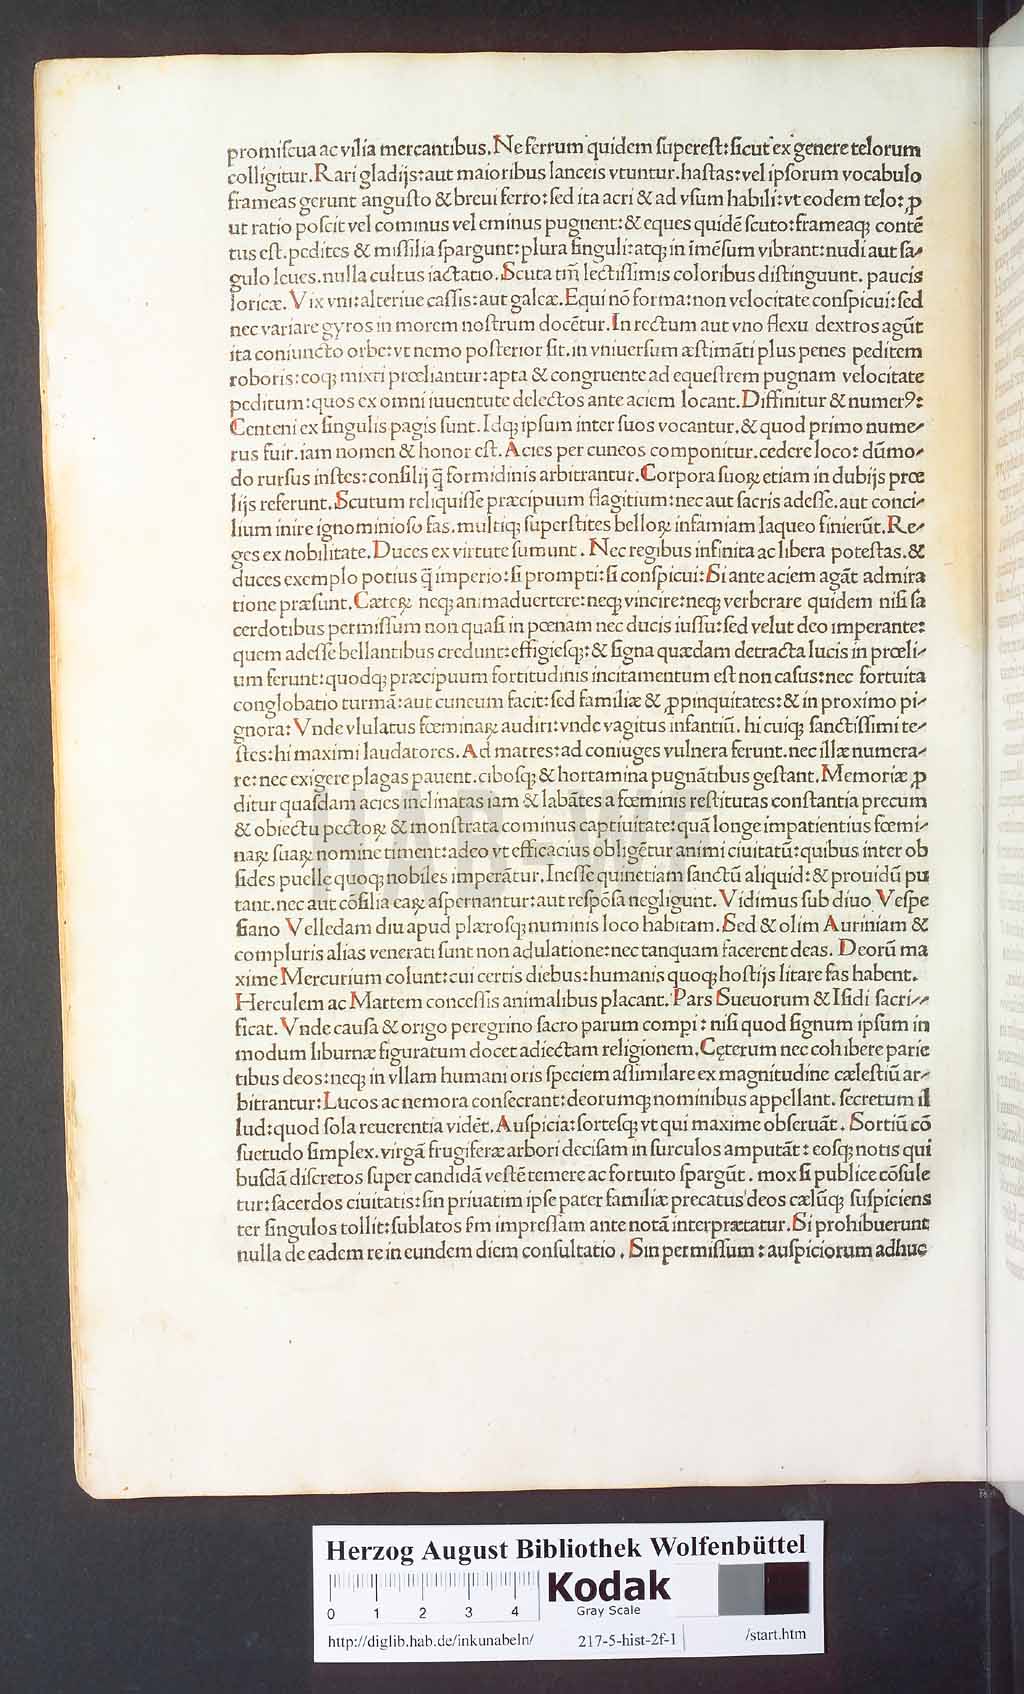 promiſcua ac vilia mercantibus. Ne ferrum quidem ſupereſt: ſicut ex genere telorum
colligitur. Rari gladijs: aut maioribus lanceis vtuntur. haſtas: vel ipſorum vocabulo
frameas gerunt anguſto & breui ferro: ſed ita acri & ad vſum habili: vt eodem telo: ꝓ
ut ratio poſcit vel cominus vel eminus pugnent: & eques quidē ſcuto: frameaqꝫ contē
tus eſt. pedites & miſſilia ſpargunt: plura ſinguli: atqꝫ in īmēſum vibrant: nudi aut ſa-
gulo leues. nulla cultus iactatio. Scuta tm̄ lectiſſimis coloribus diſtinguunt. paucis
loricæ. Vix vni: alteriue caſſis: aut galeæ. Equi nō forma: non velocitate conſpicui: ſed
nec variare gyros in morem noſtrum docētur. In rectum aut vno flexu dextros agūt
ita coniuncto orbe: vt nemo poſterior ſit. in vniuerſum æſtimāti plus penes peditem
roboris: eoqꝫ mixti prœliantur: apta & congruente ad equeſtrem pugnam velocitate
peditum: quos ex omni iuuentute delectos ante aciem locant. Diffinitur & numerꝰ:
Centeni ex ſingulis pagis ſunt. Idqꝫ ipſum inter ſuos vocantur. & quod primo nume-
rus fuit. iam nomen & honor eſt. Acies per cuneos componitur. cedere loco: dūmo-
do rurſus inſtes: conſilij q̄ formidinis arbitrantur. Corpora ſuoꝝ etiam in dubijs prœ
lijs referunt. Scutum reliquiſſe præcipuum flagitium: nec aut ſacris adeſſe. aut conci-
lium inire ignominioſo fas. multiqꝫ ſuperſtites belloꝝ infamiam laqueo finierūt. Re-
ges ex nobilitate. Duces ex virtute ſumunt. Nec regibus infinita ac libera poteſtas. &
duces exemplo potius q̄ imperio: ſi prompti: ſi conſpicui: Si ante aciem agāt admira
tione præſunt. Cæteꝝ neqꝫ animaduertere: neqꝫ vincire: neqꝫ verberare quidem niſi ſa
cerdotibus permiſſum non quaſi in pœnam nec ducis iuſſu: ſed velut deo imperante:
quem adeſſe bellantibus credunt: effigieſqꝫ: & ſigna quædam detracta lucis in prœli-
um ferunt: quodqꝫ præcipuum fortitudinis incitamentum eſt non caſus: nec fortuita
conglobatio turmā: aut cuneum facit: ſed familiæ & ꝓpinquitates: & in proximo pi-
gnora: Vnde vlulatus fœminaꝝ audiri: vnde vagitus infantiū. hi cuiqꝫ ſanctiſſimi te-
ſtes: hi maximi laudatores. Ad matres: ad coniuges vulnera ferunt. nec illæ numera-
re: nec exigere plagas pauent. ciboſqꝫ & hortamina pugnātibus geſtant. Memoriæ ꝓ
ditur quaſdam acies inclinatas iam & labātes a fœminis reſtitutas conſtantia precum
& obiectu pectoꝝ & monſtrata cominus captiuitate: quā longe impatientius fœmi-
naꝝ ſuaꝝ nomine timent: adeo vt efficacius obligētur animi ciuitatū: quibus inter ob
ſides puellę quoqꝫ nobiles imperātur. Ineſſe quinetiam ſanctū aliquid: & prouidū pu
tant. nec aut cōſilia eaꝝ aſpernantur: aut reſpōſa negligunt. Vidimus ſub diuo Veſpe
ſiano Velledam diu apud plæroſqꝫ numinis loco habitam. Sed & olim Auriniam &
compluris alias venerati ſunt non adulatione: nec tanquam facerent deas. Deorū ma
xime Mercurium colunt: cui certis diebus: humanis quoqꝫ hoſtijs litare fas habent.
Herculem ac Martem conceſſis animalibus placant. Pars Sueuorum & Iſidi ſacri-
ficat. Vnde cauſa & origo peregrino ſacro parum compi: niſi quod ſignum ipſum in
modum liburnæ figuratum docet adiectam religionem. Cęterum nec cohibere parie
tibus deos: neqꝫ in vllam humani oris ſpeciem aſſimilare ex magnitudine cæleſtiū ar-
bitrantur: Lucos ac nemora conſecrant: deorumqꝫ nominibus appellant. ſecretum il
lud: quod ſola reuerentia vidēt. Auſpicia: ſorteſqꝫ vt qui maxime obſeruāt. Sortiū cō
ſuetudo ſimplex. virgā frugiferæ arbori deciſam in ſurculos amputāt: eoſqꝫ notis qui
buſdā diſcretos ſuper candidā veſtē temere ac fortuito ſpargūt. mox ſi publice cōſule
tur: ſacerdos ciuitatis: ſin priuatim ipſe pater familiæ precatus deos cælūqꝫ ſuſpiciens
ter ſingulos tollit: ſublatos ſm̄ impreſſam ante notā interprætatur. Si prohibuerunt
nulla de eadem re in eundem diem conſultatio. Sin permiſſum: auſpiciorum adhuc
HAB-WF
Herzog August Bibliothek Wolfenbüttel
0 1 2 3 4
Kodak
Gray Scale
http://diglib.hab.de/inkunabeln/ 217-5-hist-2f-1 /start.htm